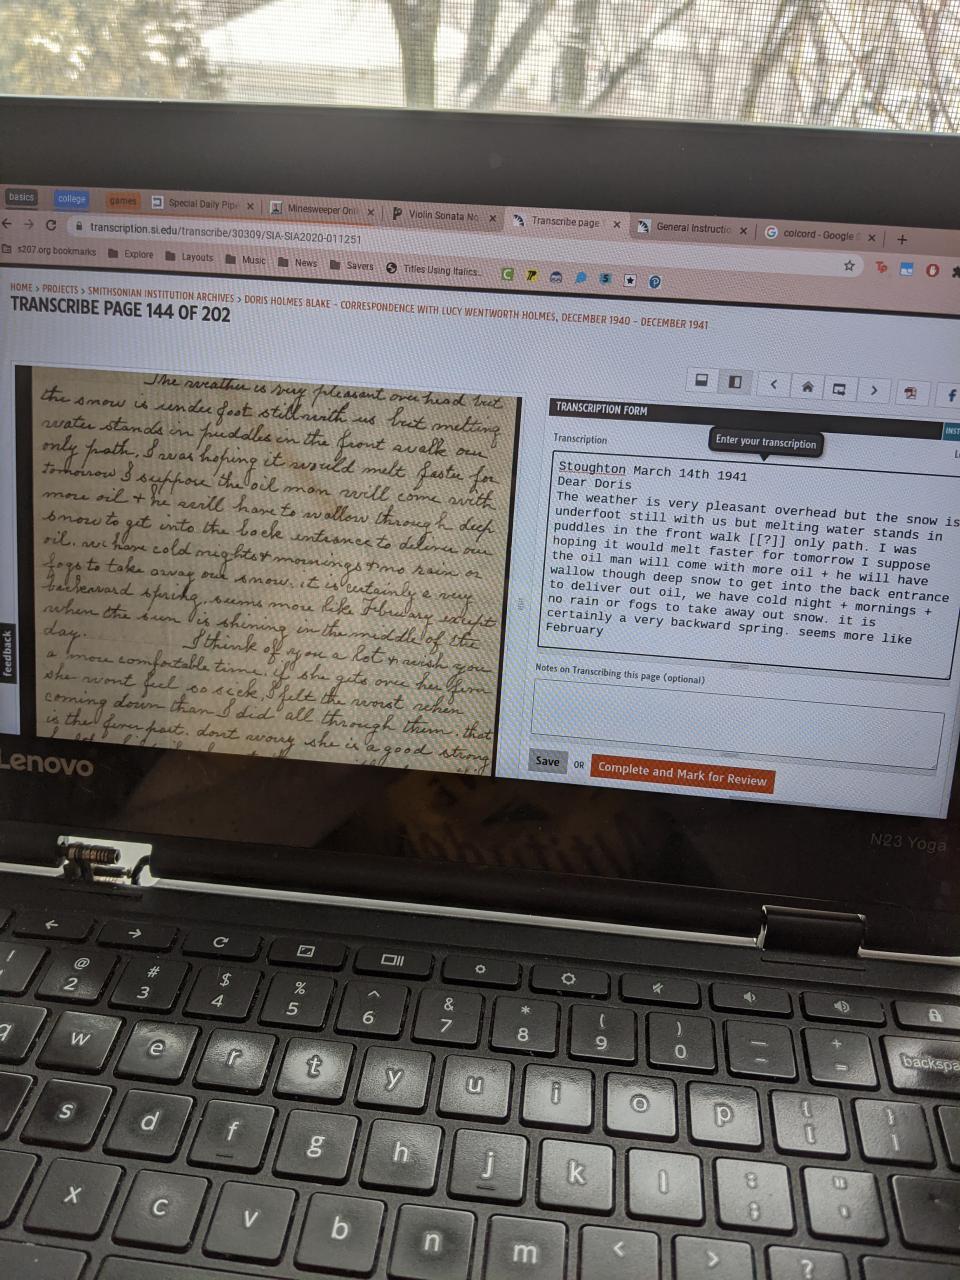 basics
college
games
Special Daily Pip
Minesweeper Onli
Violin Sonata No.
Transcribe page
General Instructio
colcord - Google S
transcription.si.edu/transcribe/30309/SIA-SIA2020-011251
s207.org bookmarks
Explore
Layouts
Music
News
Savers
Titles Using Italics...
HOME > PROJECTS > SMITHSONIAN INSTITUTION ARCHIVES > DORIS HOLMES BLAKE - CORRESPONDENCE WITH LUCY WENTWORTH HOLMES, DECEMBER 1940 - DECEMBER 1941
TRANSCRIBE PAGE 144 OF 202
The weather is very pleasant over head but
the snow is under foot still with us but melting
water stands in puddles in the front walk our
only path. I was hoping it would melt faster for
tomorrow I suppose the oil man will come with
more oil + he will have to wallow through deep
snow to get into the back entrance to deliver our
oil. we have cold nights + mornings + no rain or
fogs to take away our snow. it is certainly a very
backward spring. seems more like February except
when the sun is shining in the middle of the
day. I think of you a lot + wish you
a more comfortable time. if she gets over her
she wont feel so sick. I felt the worst when
coming down than I did all through them. that
is the part. dont worry she is a good strong
TRANSCRIPTION FORM
INST
Transcription
Enter your transcription
Stoughton March 14th 1941
Dear Doris
The weather is very pleasant overhead but the snow is
underfoot still with us but melting water stands in
puddles in the front walk [[?]] only path. I was
hoping it would melt faster for tomorrow I suppose
the oil man will come with more oil + he will have
wallow though deep snow to get into the back entrance
to deliver out oil, we have cold night + mornings +
no rain or fogs to take away out snow. it is
certainly a very backward spring. seems more like
February
Notes on Transcribing this page (optional)
Save OR Complete and Mark for Review
feedback
Lenovo
N23 Yoga
! @ 2 # 3 $ 4 % 5 ^ 6 & 7 * 8 ( 9 ) 0 — - + = backspa
q w e r t y u i o p { [ } ]
s d f g h j k l : ; " '
x c v b n m < > ?